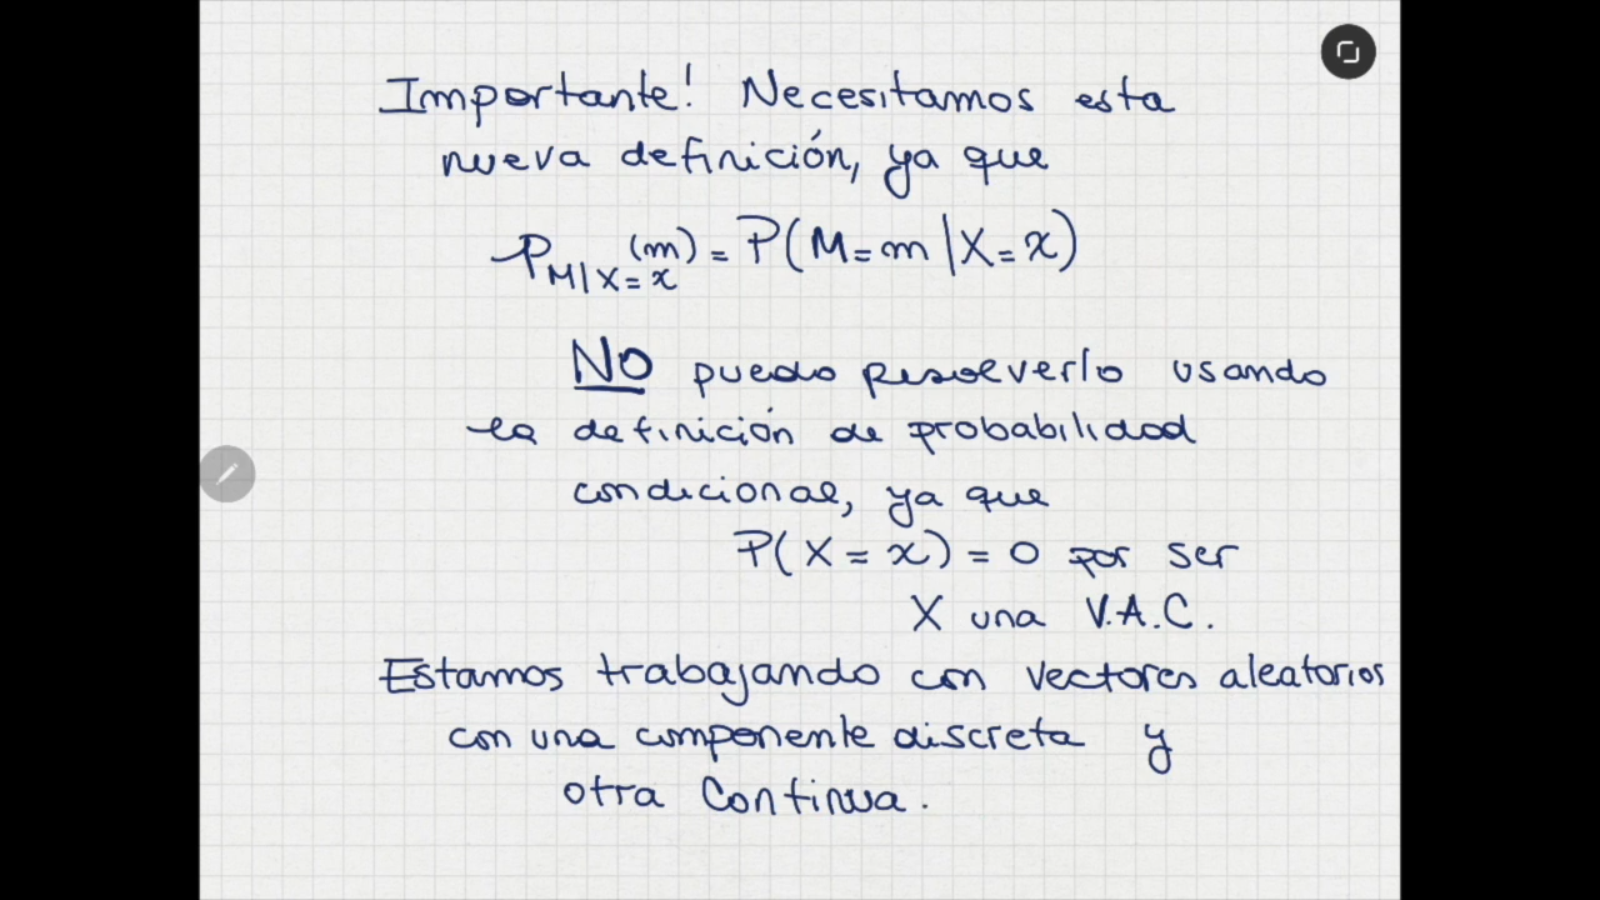 Importante! Necesitamos esta
nueva definición, ya que
P_{M|X=x}(m) = P(M=m|X=x)
NO puedo resolverlo usando
la definición de probabilidad
condicional, ya que
P(X=x)=0 por ser
X una V.A.C.
Estamos trabajando con vectores aleatorios
con una componente discreta y
otra continua.